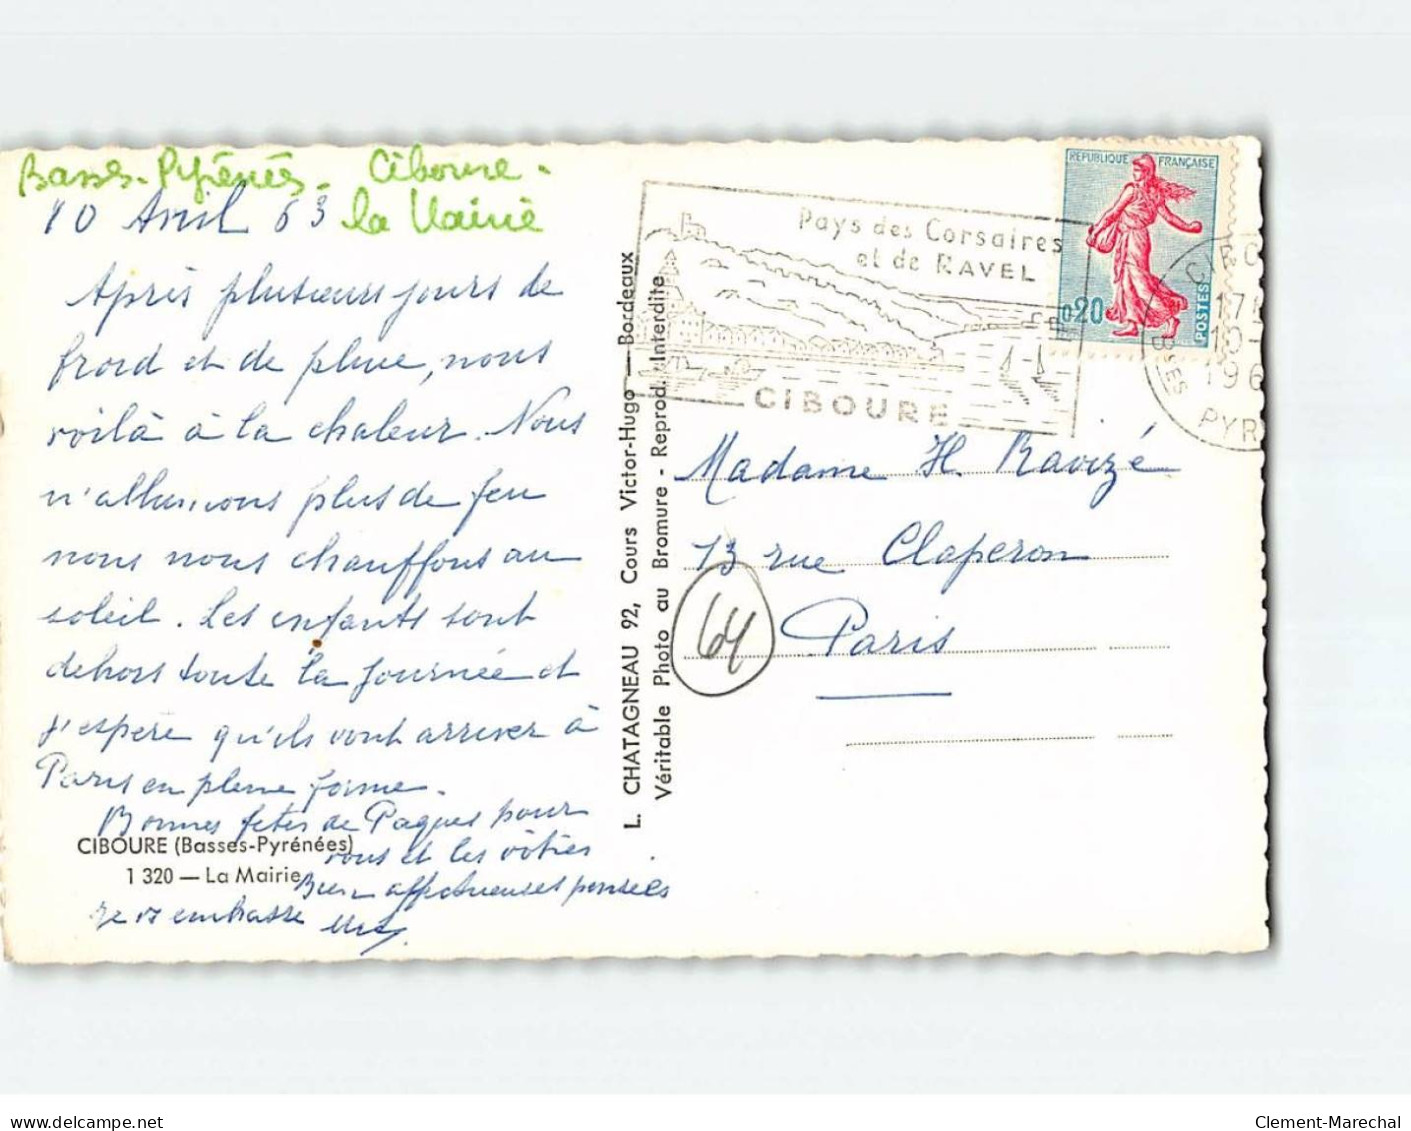 Basses-Pyrénées - Ciboure -
la Mairie
10 Avril 63
Après plusieurs jours de
froid et de pluie, nous
voilà à la chaleur. Nous
n'allumons plus de feu
nous nous chauffons au
soleil. Les enfants sont
dehors toute la journée et
j'espère qu'ils vont arriver à
Paris en pleine forme.
Bonnes fêtes de Paques pour
vous et les vôtres
Bien affectueuses pensées
je vs embrasse
CIBOURE (Basses-Pyrénées)
1 320 — La Mairie
L. CHATAGNEAU 92, Cours Victor-Hugo — Bordeaux
Véritable Photo au Bromure - Reprod. Interdite
Pays des Corsaires
et de RAVEL
CIBOURE
REPUBLIQUE FRANÇAISE
0,20
POSTES
17H
10-
196
Bses PYR
Madame H. Ravizé
13 rue Claperon
Paris
64
delcampe.net
Clement-Marechal